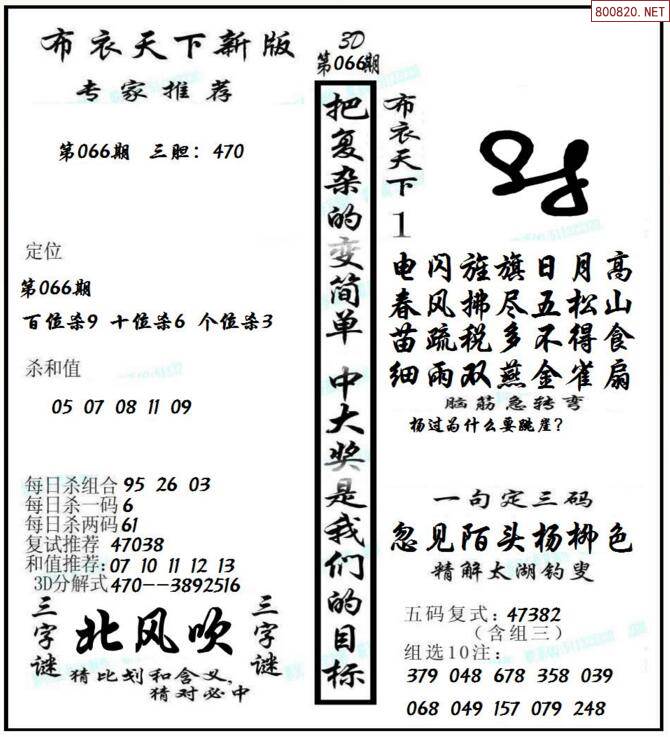 800820.NET
布衣天下新版
专家推荐
第066期 三胆：470
定位
第066期
百位杀9 十位杀6 个位杀3
杀和值
05 07 08 11 09
每日杀组合 95 26 03
每日杀一码 6
每日杀两码 61
复试推荐 47038
和值推荐：07 10 11 12 13
3D分解式 470--3892516
三字谜
北风吹
三字谜
猜比划和含义，
猜对必中
3D
第066期
把复杂的变简单 中大奖是我们的目标
布衣天下1
电闪旌旗日月高
春风拂尽五松山
苗疏税多不得食
细雨双燕金雀扇
脑筋急转弯
杨过为什么要跳崖？
一句定三码
忽见陌头杨柳色
精解太湖钓叟
五码复式：47382
（含组三）
组选10注：
379 048 678 358 039
068 049 157 079 248